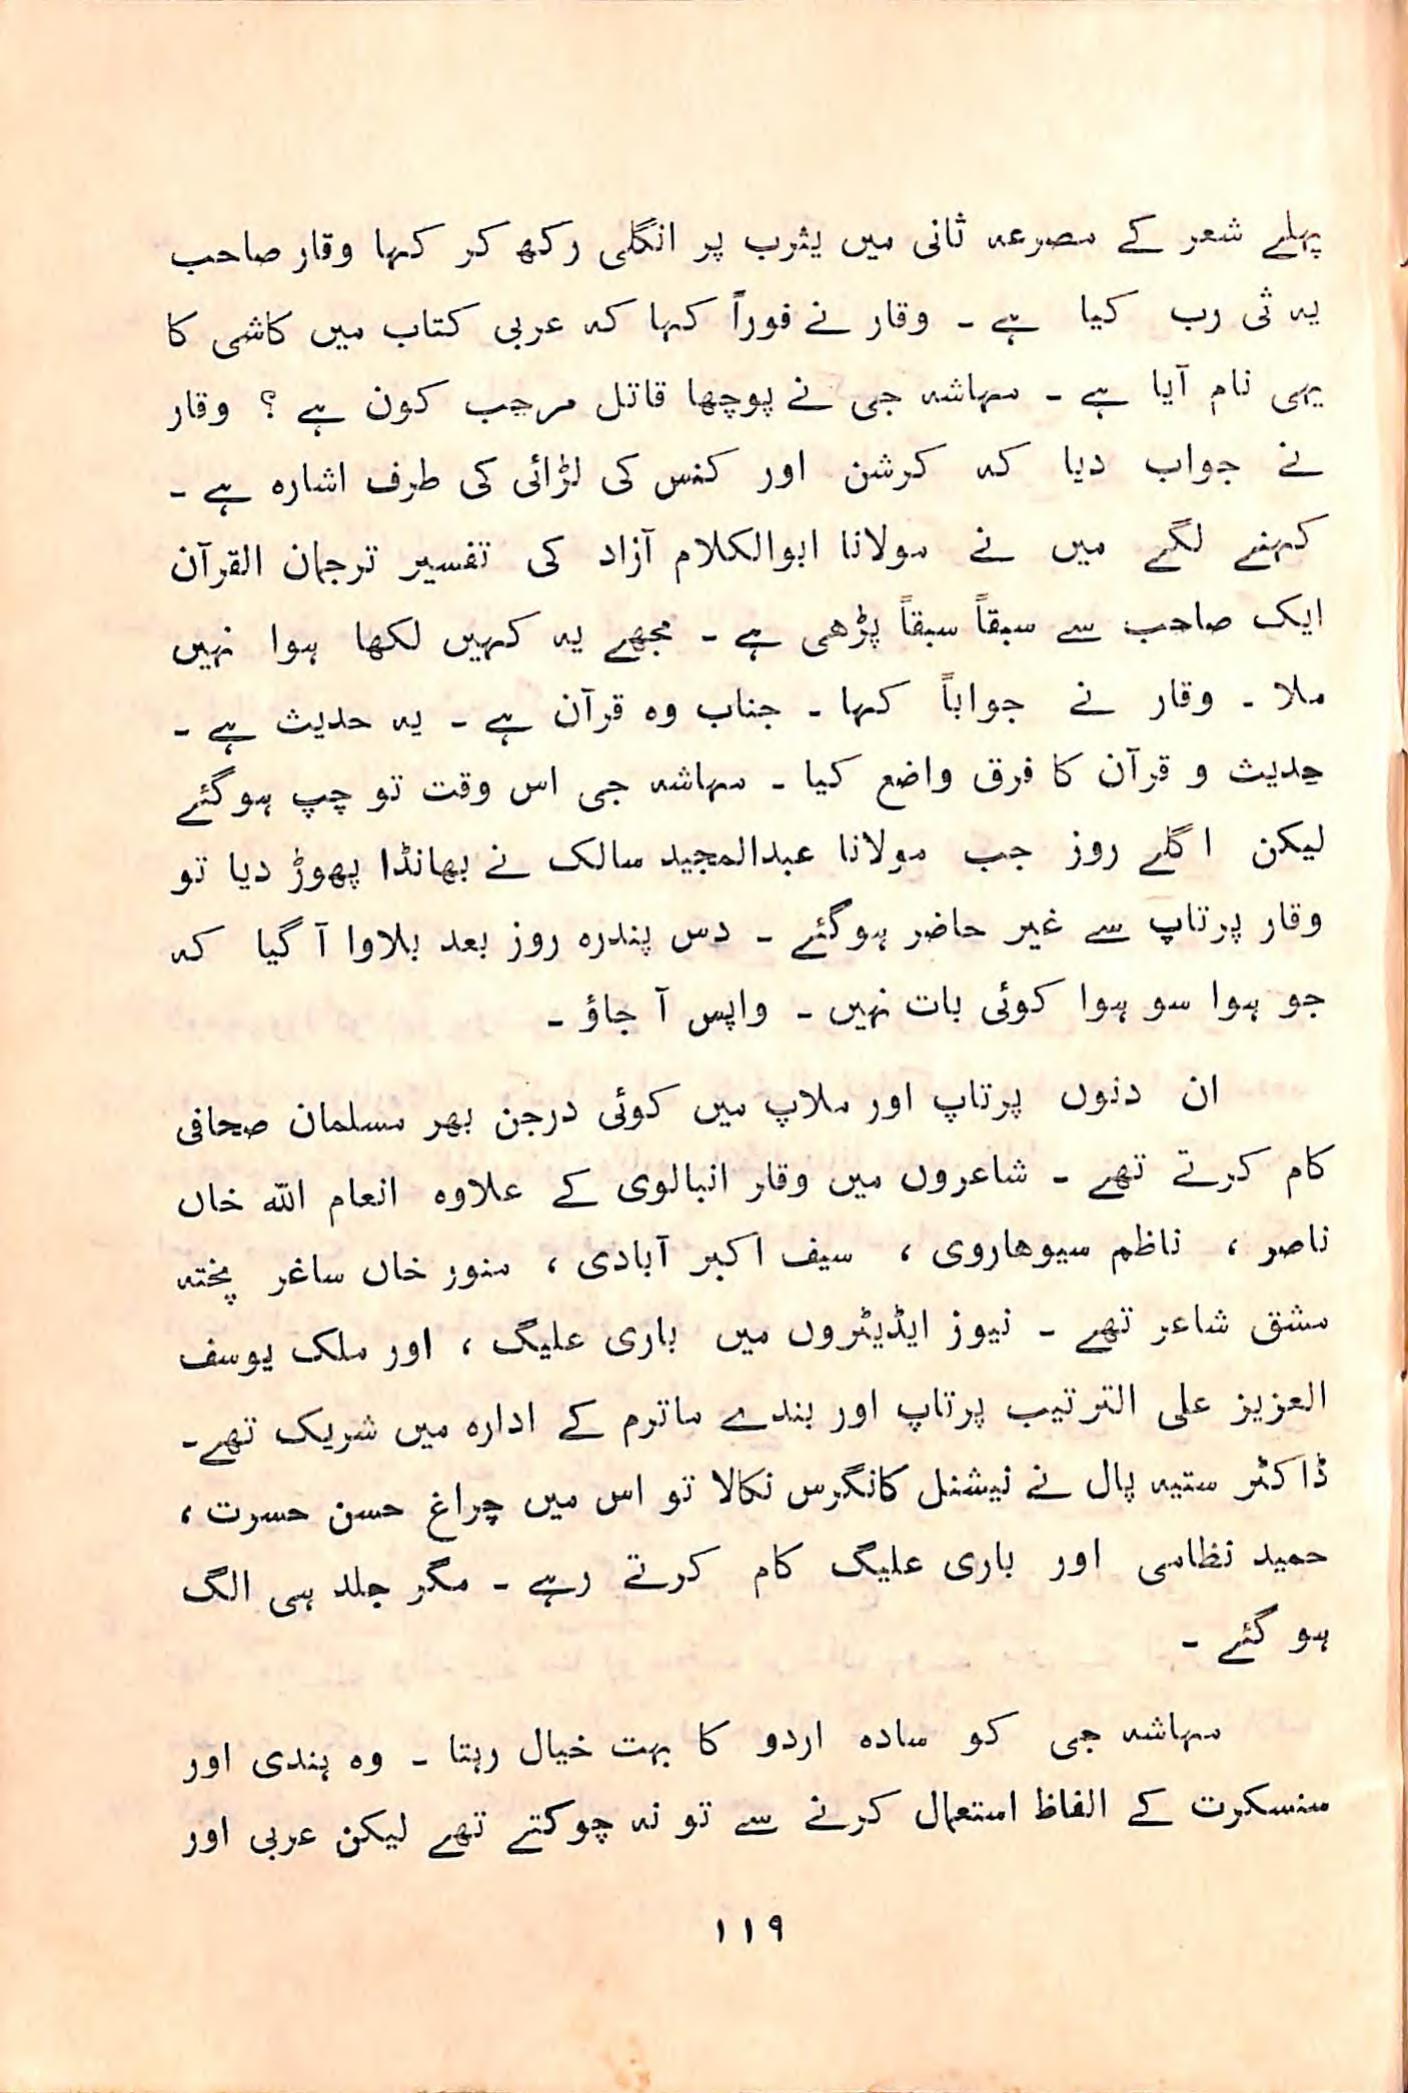 پہلے شعر کے مصرعہ ثانی میں یثرب پر انگلی رکھ کر کہا وقار صاحب
یہ ثی رب کیا ہے ۔ وقار نے فوراً کہا کہ عربی کتاب میں کاشی کا
یہی نام آیا ہے ۔ مہاشہ جی نے پوچھا قاتل مرحب کون ہے ؟ وقار
نے جواب دیا کہ کرشن اور کنس کی لڑائی کی طرف اشارہ ہے ۔
کہنے لگے میں نے مولانا ابوالکلام آزاد کی تفسیر ترجمان القرآن
ایک صاحب سے سبقاً سبقاً پڑھی ہے ۔ مجھے یہ کہیں لکھا ہوا نہیں
ملا ۔ وقار نے جواباً کہا ۔ جناب وہ قرآن ہے ۔ یہ حدیث ہے ۔
حدیث و قرآن کا فرق واضع کیا ۔ مہاشہ جی اس وقت تو چپ ہوگئے
لیکن اگلے روز جب مولانا عبدالمجید سالک نے بھانڈا پھوڑ دیا تو
وقار پرتاپ سے غیر حاضر ہوگئے ۔ دس پندرہ روز بعد بلاوا آ گیا کہ
جو ہوا سو ہوا کوئی بات نہیں ۔ واپس آ جاؤ ۔
ان دنوں پرتاپ اور ملاپ میں کوئی درجن بھر مسلمان صحافی
کام کرتے تھے ۔ شاعروں میں وقار انبالوی کے علاوہ انعام اللہ خاں
ناصر ، ناظم سیوھاروی ، سیف اکبر آبادی ، منور خاں ساغر پختہ
مشق شاعر تھے ۔ نیوز ایڈیٹروں میں باری علیگ ، اور ملک یوسف
العزیز علی الترتیب پرتاپ اور بندے ماترم کے ادارہ میں شریک تھے۔
ڈاکٹر ستیہ پال نے نیشنل کانگرس نکالا تو اس میں چراغ حسن حسرت ،
حمید نظامی اور باری علیگ کام کرتے رہے ۔ مگر جلد ہی الگ
ہو گئے ۔
مہاشہ جی کو سادہ اردو کا بہت خیال رہتا ۔ وہ ہندی اور
سنسکرت کے الفاظ استعمال کرنے سے تو نہ چوکتے تھے لیکن عربی اور
۱۱۹